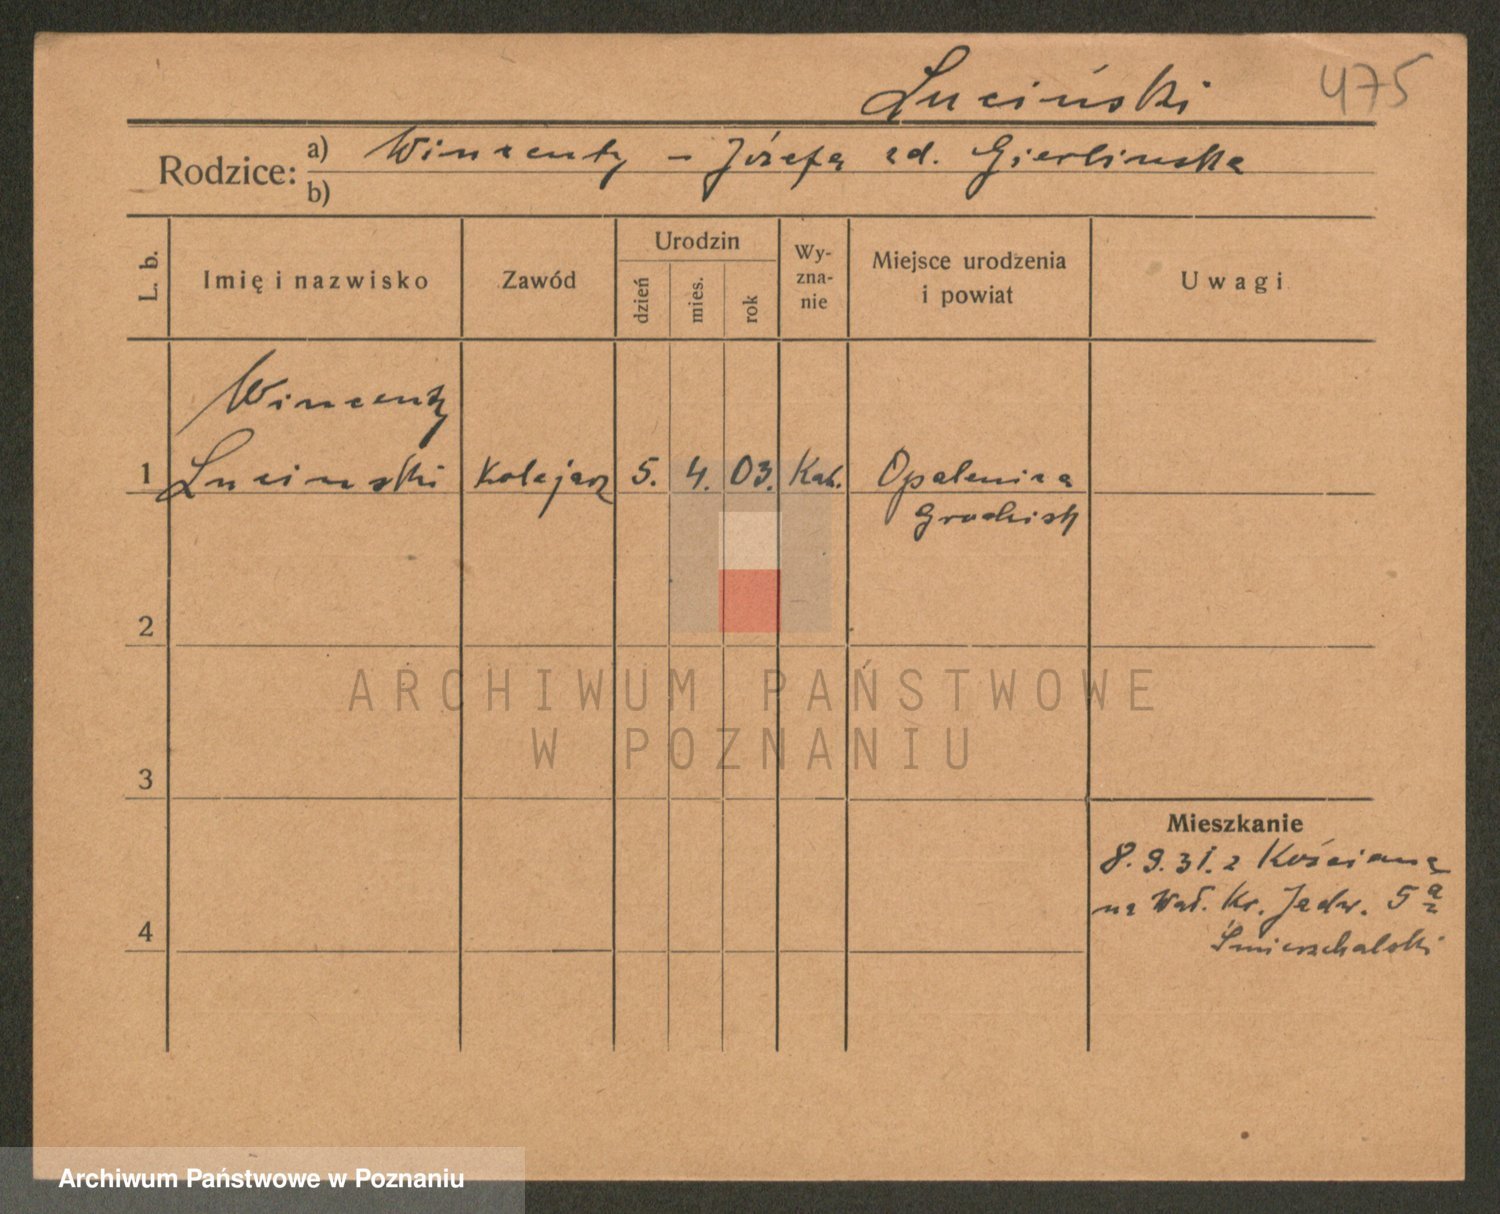 Luciński 475
Rodzice: a) Wincenty – Józefa zd. Gierlinska
b)
L. b. Imię i nazwisko Zawód Urodzin dzień mies. rok Wy-zna-nie Miejsce urodzenia i powiat Uwagi
Wincenty
1 Lucinski Kolejarz 5. 4. 03. Kat. Opalenica
Grodzisk
2
ARCHIWUM PAŃSTWOWE
W POZNANIU
3
Mieszkanie
8.9.31. z Kościana
na Wał. Kr. Jadw. 5a
4
Archiwum Państwowe w Poznaniu